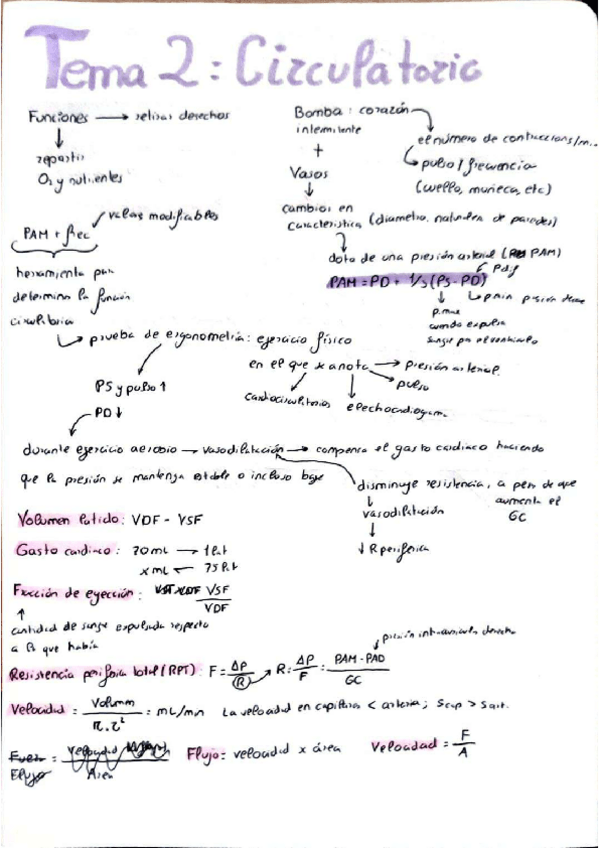 Tema 2: Circulatorio
Funciones → retirar desechos
repartir
O₂ y nutrientes
Bomba: corazón
intermitente
+
Vasos
el número de contracciones/m..
pulso / frecuencia
(cuello, muñeca, etc)
cambios en
característica (diametro, naturaleza de paredes)
dota de una presión arterial (PAM)
PAM = PD + 1/3 (PS - PD)
P. max
cuando expulsa
sangre por el ventriculo
valores modificables
PAM + frec
herramienta para
determinar la función
circulatoria
prueba de ergonometría: ejercicio físico
en el que se anota → presión arterial
pulso
electrocardiograma
cardiocirculatorios
PS y pulso ↑
PD ↓
durante ejercicio aerobio → vasodilatación → compensa el gasto cardiaco haciendo
que la presión se mantenga estable o incluso baje
disminuye resistencia, a pesar de que
aumenta el
GC
vasodilatación
↓ R periferica
Volumen latido: VDF - VSF
Gasto cardiaco: 70 mL → 1 lat
x mL ← 75 lat
Fracción de eyección: VSF
VDF
cantidad de sangre expulsada respecto
a la que había
presión intraauricular derecha
Resistencia periferica total (RPT): F = ΔP/(R) → R = ΔP/F = PAM - PAD/GC
Velocidad = Volumen/π.r² = mL/min La velocidad en capilares < arteria; Scap > Sart.
Flujo = velocidad x área Velocidad = F/A